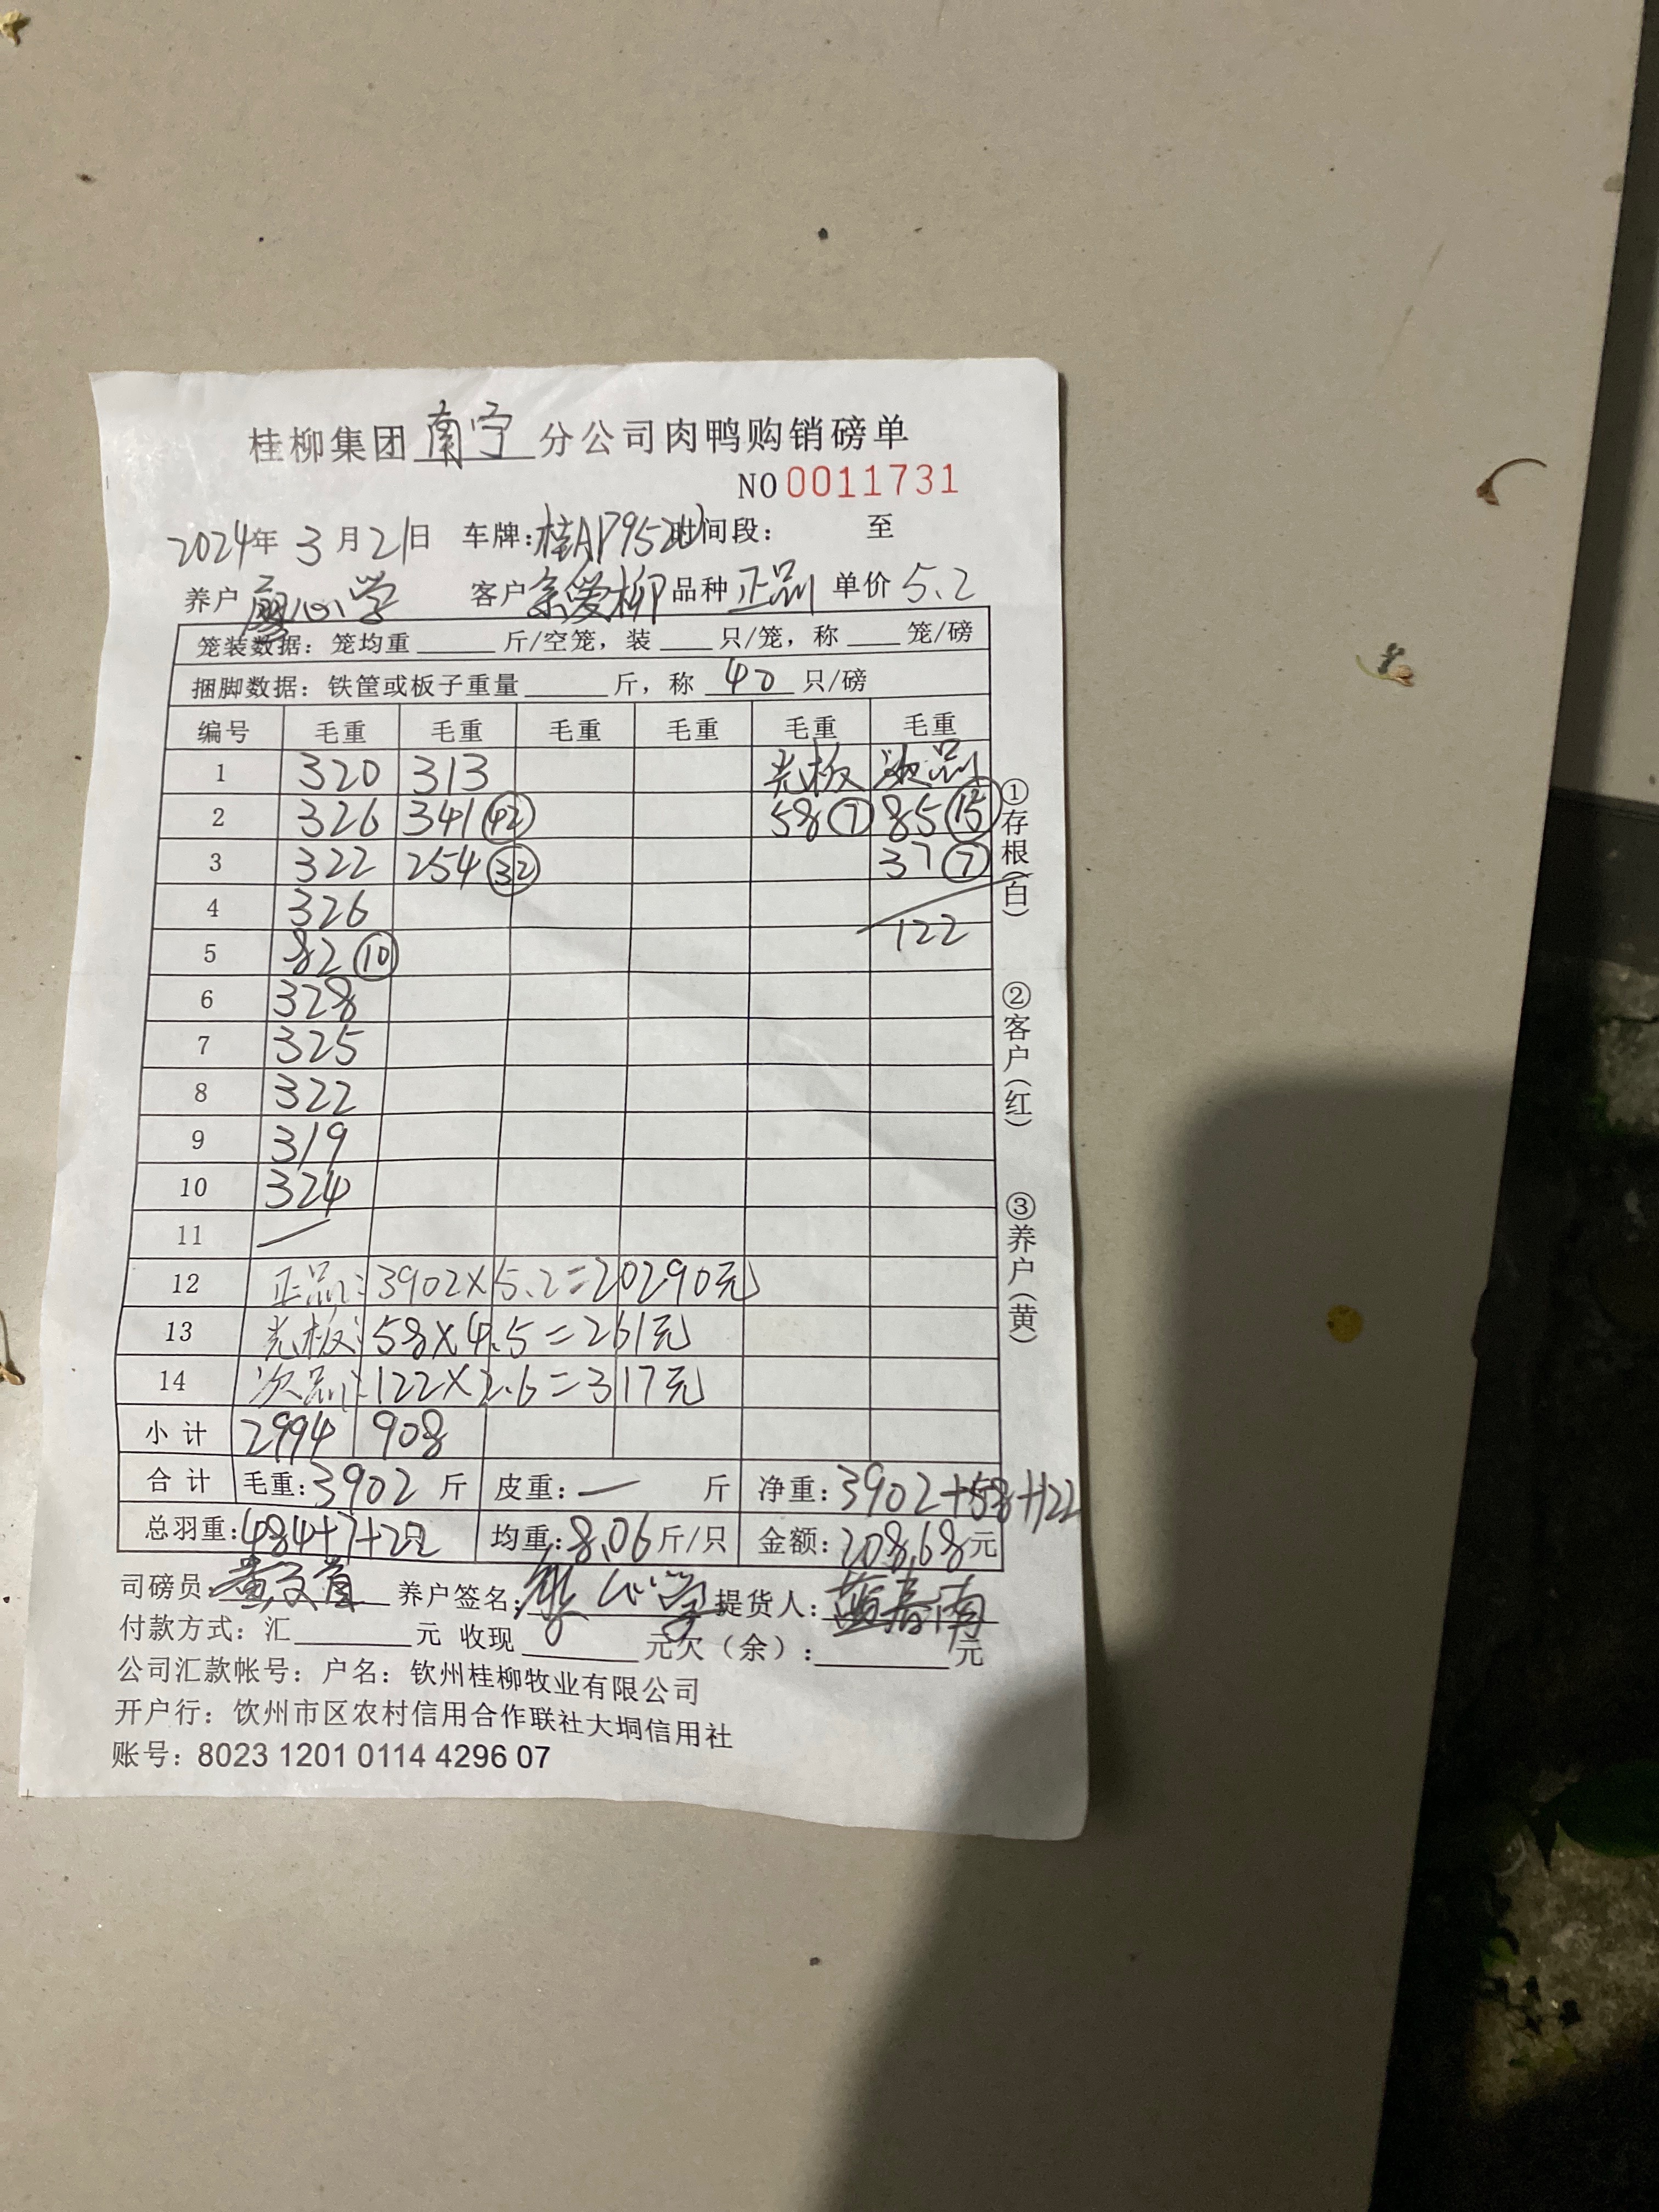 桂柳集团南宁分公司肉鸭购销磅单
NO 0011731
2024年 3月21日 车牌: 桂AP952 时间段: 至
养户 廖心学 客户 亲爱柳 品种 正品 单价 5.2
笼装数据: 笼均重 斤/空笼, 装 只/笼, 称 笼/磅
捆脚数据: 铁筐或板子重量 斤, 称 40 只/磅
编号 毛重 毛重 毛重 毛重 毛重 毛重
1 320 313 光板 次品
2 326 341 (42) 58 (7) 85 (15)
3 322 254 (32) 37 (7)
4 326 122
5 82 (10)
6 328
7 325
8 322
9 319
10 324
11
12 正品: 3902×5.2=20290元
13 光板: 58×4.5=261元
14 次品: 122×2.6=317元
小计 2994 908
合计 毛重: 3902 斤 皮重: — 斤 净重: 3902+58+122
总羽重: 484+7+22 均重: 8.06 斤/只 金额: 20868元
司磅员: 养户签名: 心学 提货人: 蓝春南
付款方式: 汇 元 收现 元欠(余): 元
公司汇款帐号: 户名: 钦州桂柳牧业有限公司
开户行: 钦州市区农村信用合作联社大垌信用社
账号: 8023 1201 0114 4296 07
①存根(白) ②客户(红) ③养户(黄)